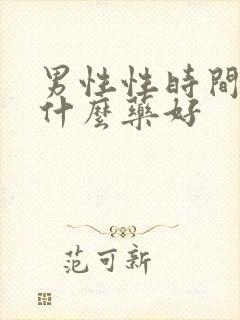 男性性時間
什麼藥好
范可新